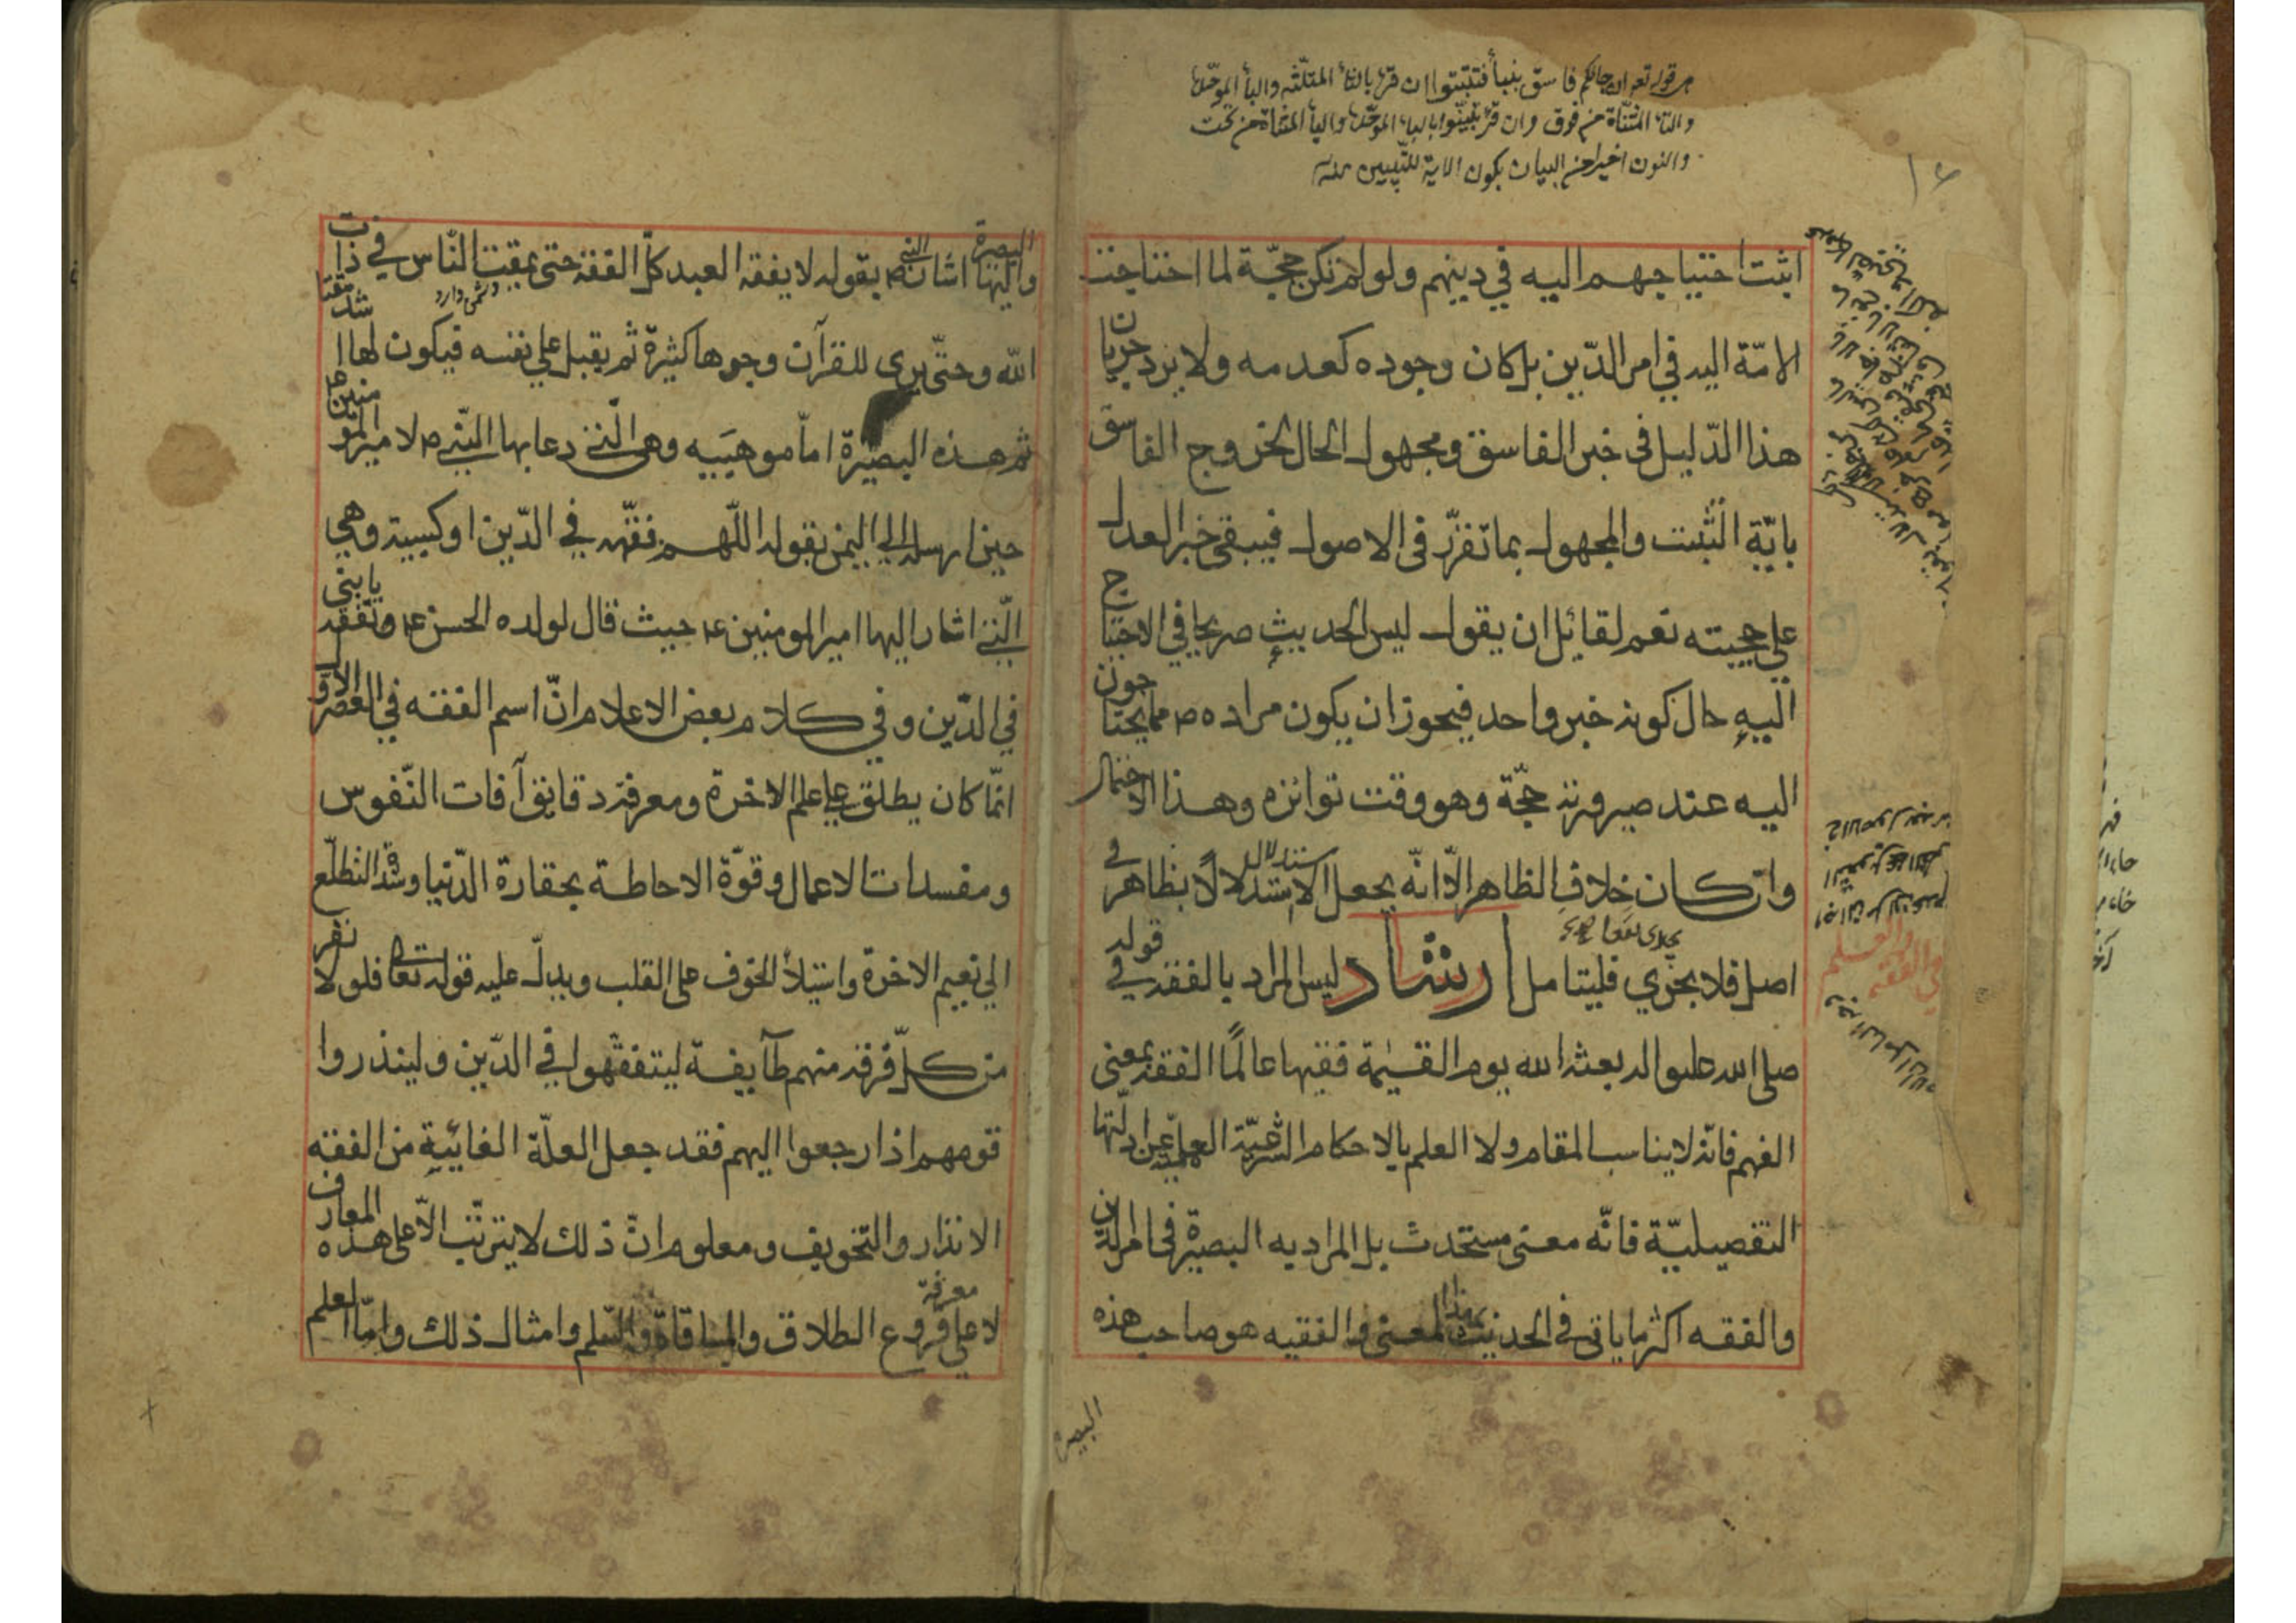 من قوله تعه ان جائكم فاسق بنبأ فتثبتوا ان قرئ بالثاء المثلثه والباء الموحدة
والتاء المثناة من فوق وان قرئ تبينوا بالباء الموحدة والياء المثناة من تحت
والنون اخيرا من البيان يكون الاية للتبيين منه
اثبت احتياجهم اليه في دينهم ولو لم تكن حجّة لما احتاجت
الامّة اليه في امر الدّين بل كان وجوده كعدمه ولا يرد جريان
هذا الدّليل فى خبر الفاسق ومجهول الحال لخروج الفاسق
بايّة التّثبت والمجهول بما تقرّر فى الاصول فيبقى خبر العدل
على حجيته نعم لقائل ان يقول ليس الحديث صريحا في الاحتياج
اليه حال كونه خبر واحد فيجوز ان يكون مراده ص مما يحتاجون
اليه عند صيرورته حجّة وهو وقت تواتره وهذا الاحتمال
وان كان خلاف الظاهر الّا انّه يجعل الاستدلال استدلالًا بظاهر في
اصل فلا يجزي فليتامل ارشاد ليس المراد بالفقه في قوله
صلى الله عليه واله بعثه الله يوم القيٰمة فقيها عالمًا الفقه بمعنى
الفهم فانّه لا يناسب المقام ولا العلم بالاحكام الشّرعيّة العمليّة عن ادلّتها
التفصيليّة فانّه معنى مستحدث بل المراد به البصيرة فى امر الدين
والفقه اكثر ما ياتى فى الحديث بهذا المعنى والفقيه هو صاحب هذه
البصيرة
البصيرة واليها اشار النبي ص بقوله لا يفقه العبد كلّ الفقه حتى يمقت النّاس في ذات
الله وحتّى يرى للقرآن وجوها كثيرة ثم يقبل على نفسه فيكون لها اشد مقتا
ثم هذه البصيرة امّا موهبيه وهى الّتي دعا بها النّبي ص لامير المومنين ع
حين ارسله الى اليمن بقوله اللّهم فقّهه في الدّين او كسبية وهي
الّتي اشار اليها امير المومنين ع حيث قال لولده الحسن ع وتفقّه يا بني
في الدّين و في كلام بعض الاعلام انّ اسم الفقه في العصر الاول
انّما كان يطلق على علم الاخرة ومعرفة دقايق آفات النّفوس
ومفسدات الاعمال وقوّة الاحاطة بحقارة الدّنيا وشدّة التطلّع
الي نعيم الاخرة واستيلاء الخوف على القلب ويدلّ عليه قوله تعالى فلولا نفر
من كلّ فرقة منهم طآيفة ليتفقّهوا في الدّين ولينذروا
قومهم اذا رجعوا اليهم فقد جعل العلّة الغائية من الفقه
الانذار والتخويف ومعلوم انّ ذلك لا يترتّب الّا على هذه المعارف
لا على معرفة فروع الطلاق والمساقاة والسّلم وامثال ذلك وامّا العلم